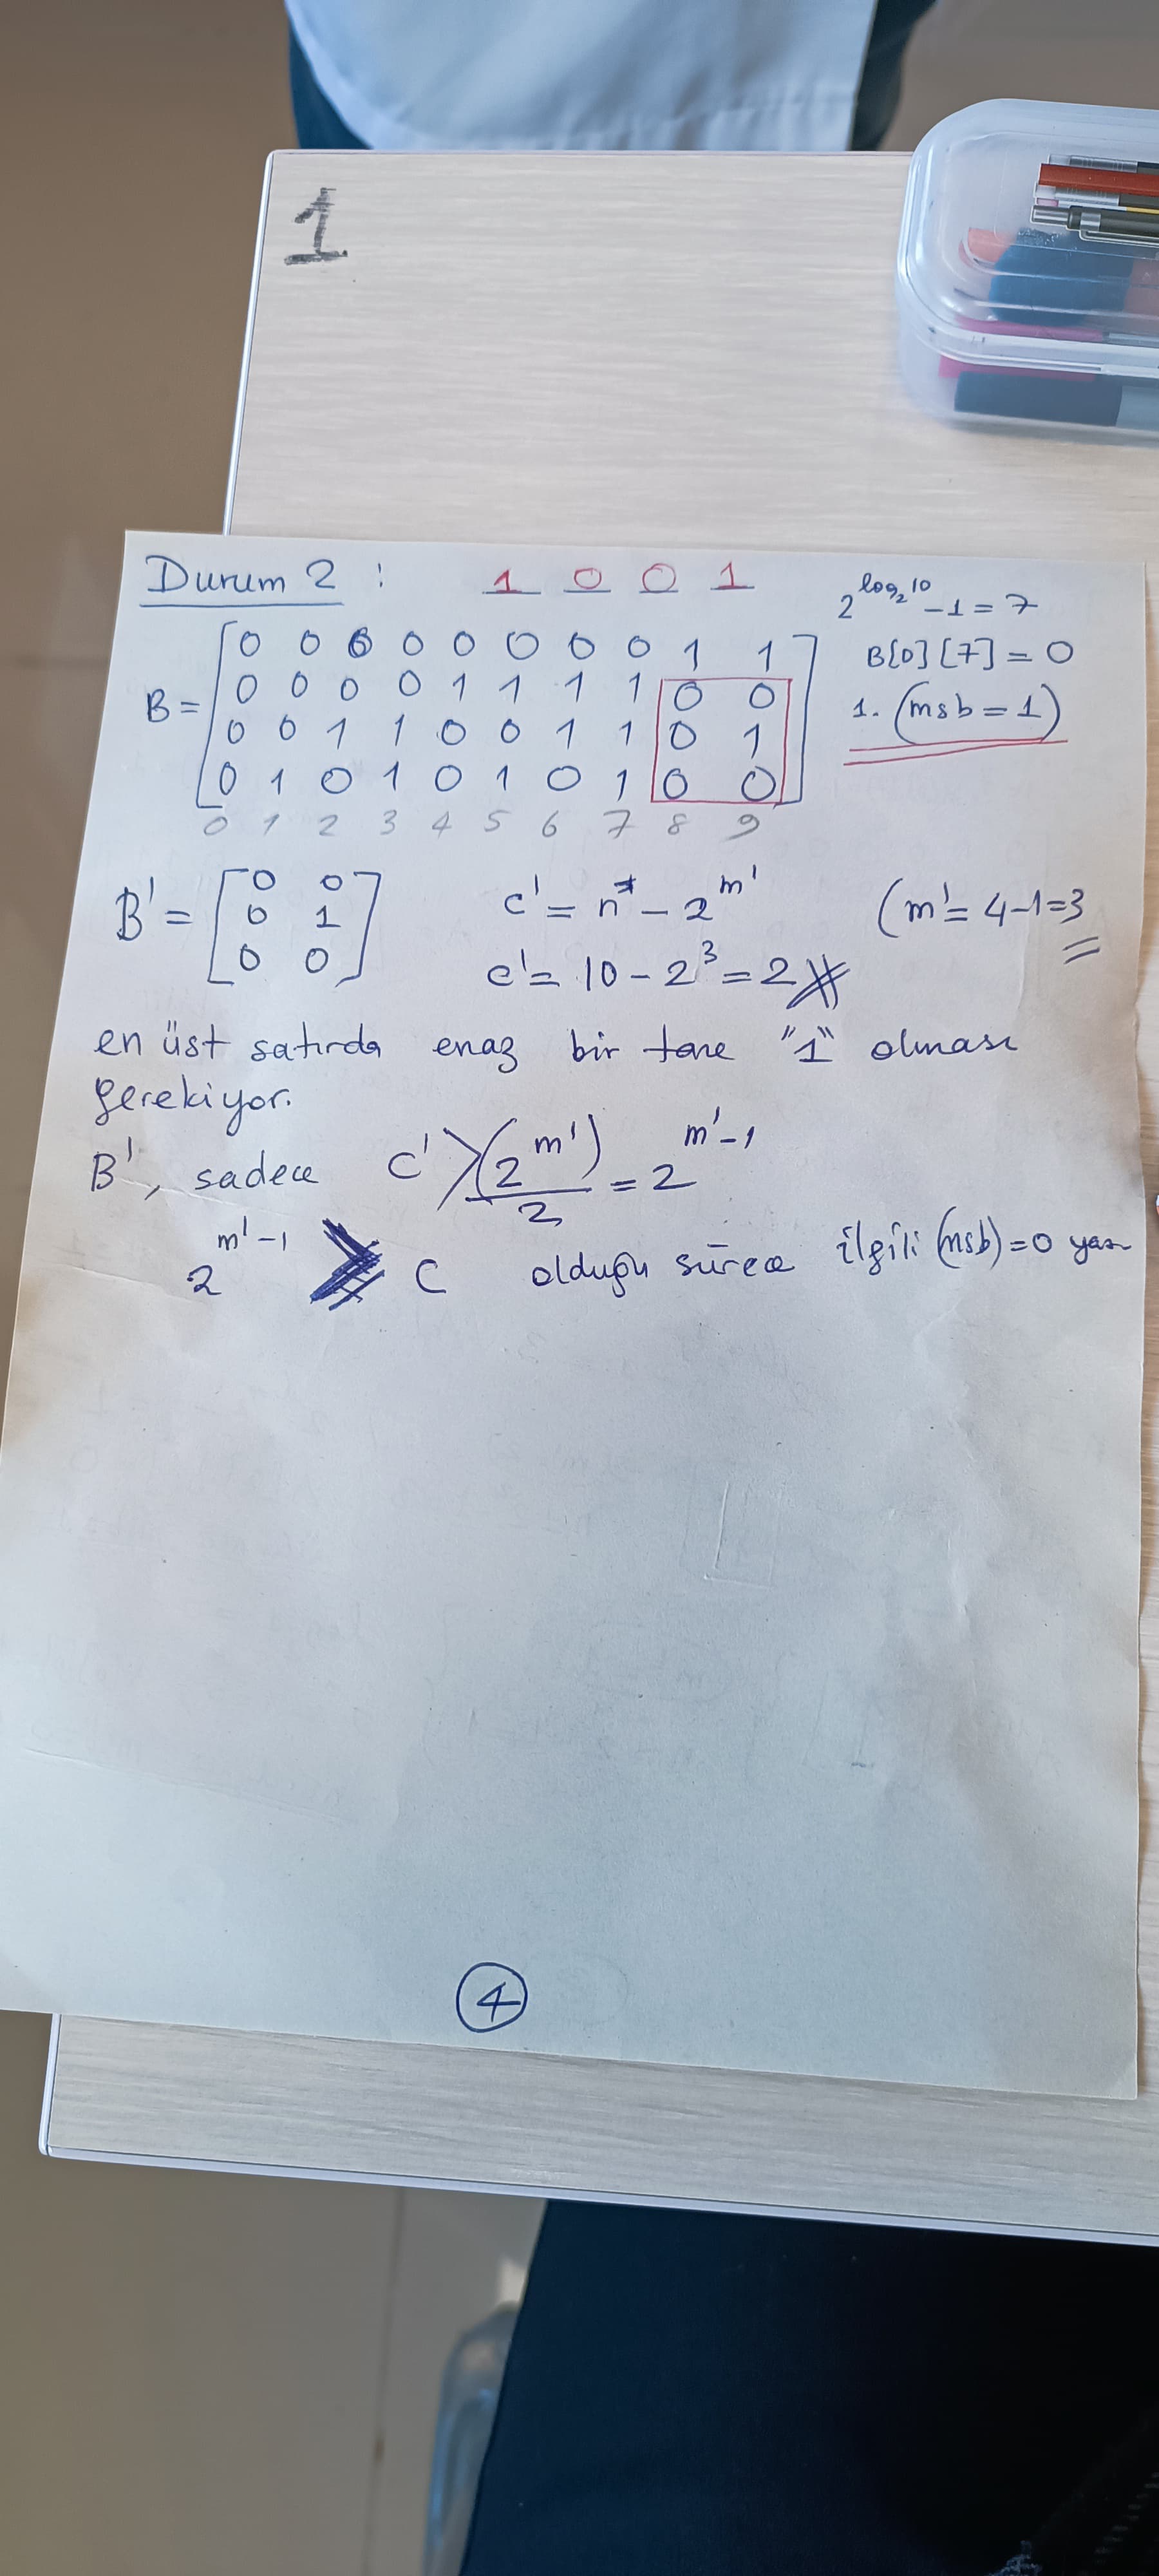 1
Durum 2 : 1 0 0 1
2^log₂10 - 1 = 7
B[0][7] = 0
1. (msb = 1)
B = [0 0 0 0 0 0 0 0 1 1
0 0 0 0 1 1 1 1 0 0
0 0 1 1 0 0 1 1 0 1
0 1 0 1 0 1 0 1 0 0]
0 1 2 3 4 5 6 7 8 9
B' = [0 0
0 1
0 0]
c' = n* - 2^m' (m' = 4-1=3
c' = 10 - 2³ = 2
en üst satırda enaz bir tane "1" olması
gerekiyor.
B', sadece C' > (2^m')/2 = 2^m'-1
2^m'-1 > C olduğu sürece ilgili (msb)=0 yaz
4